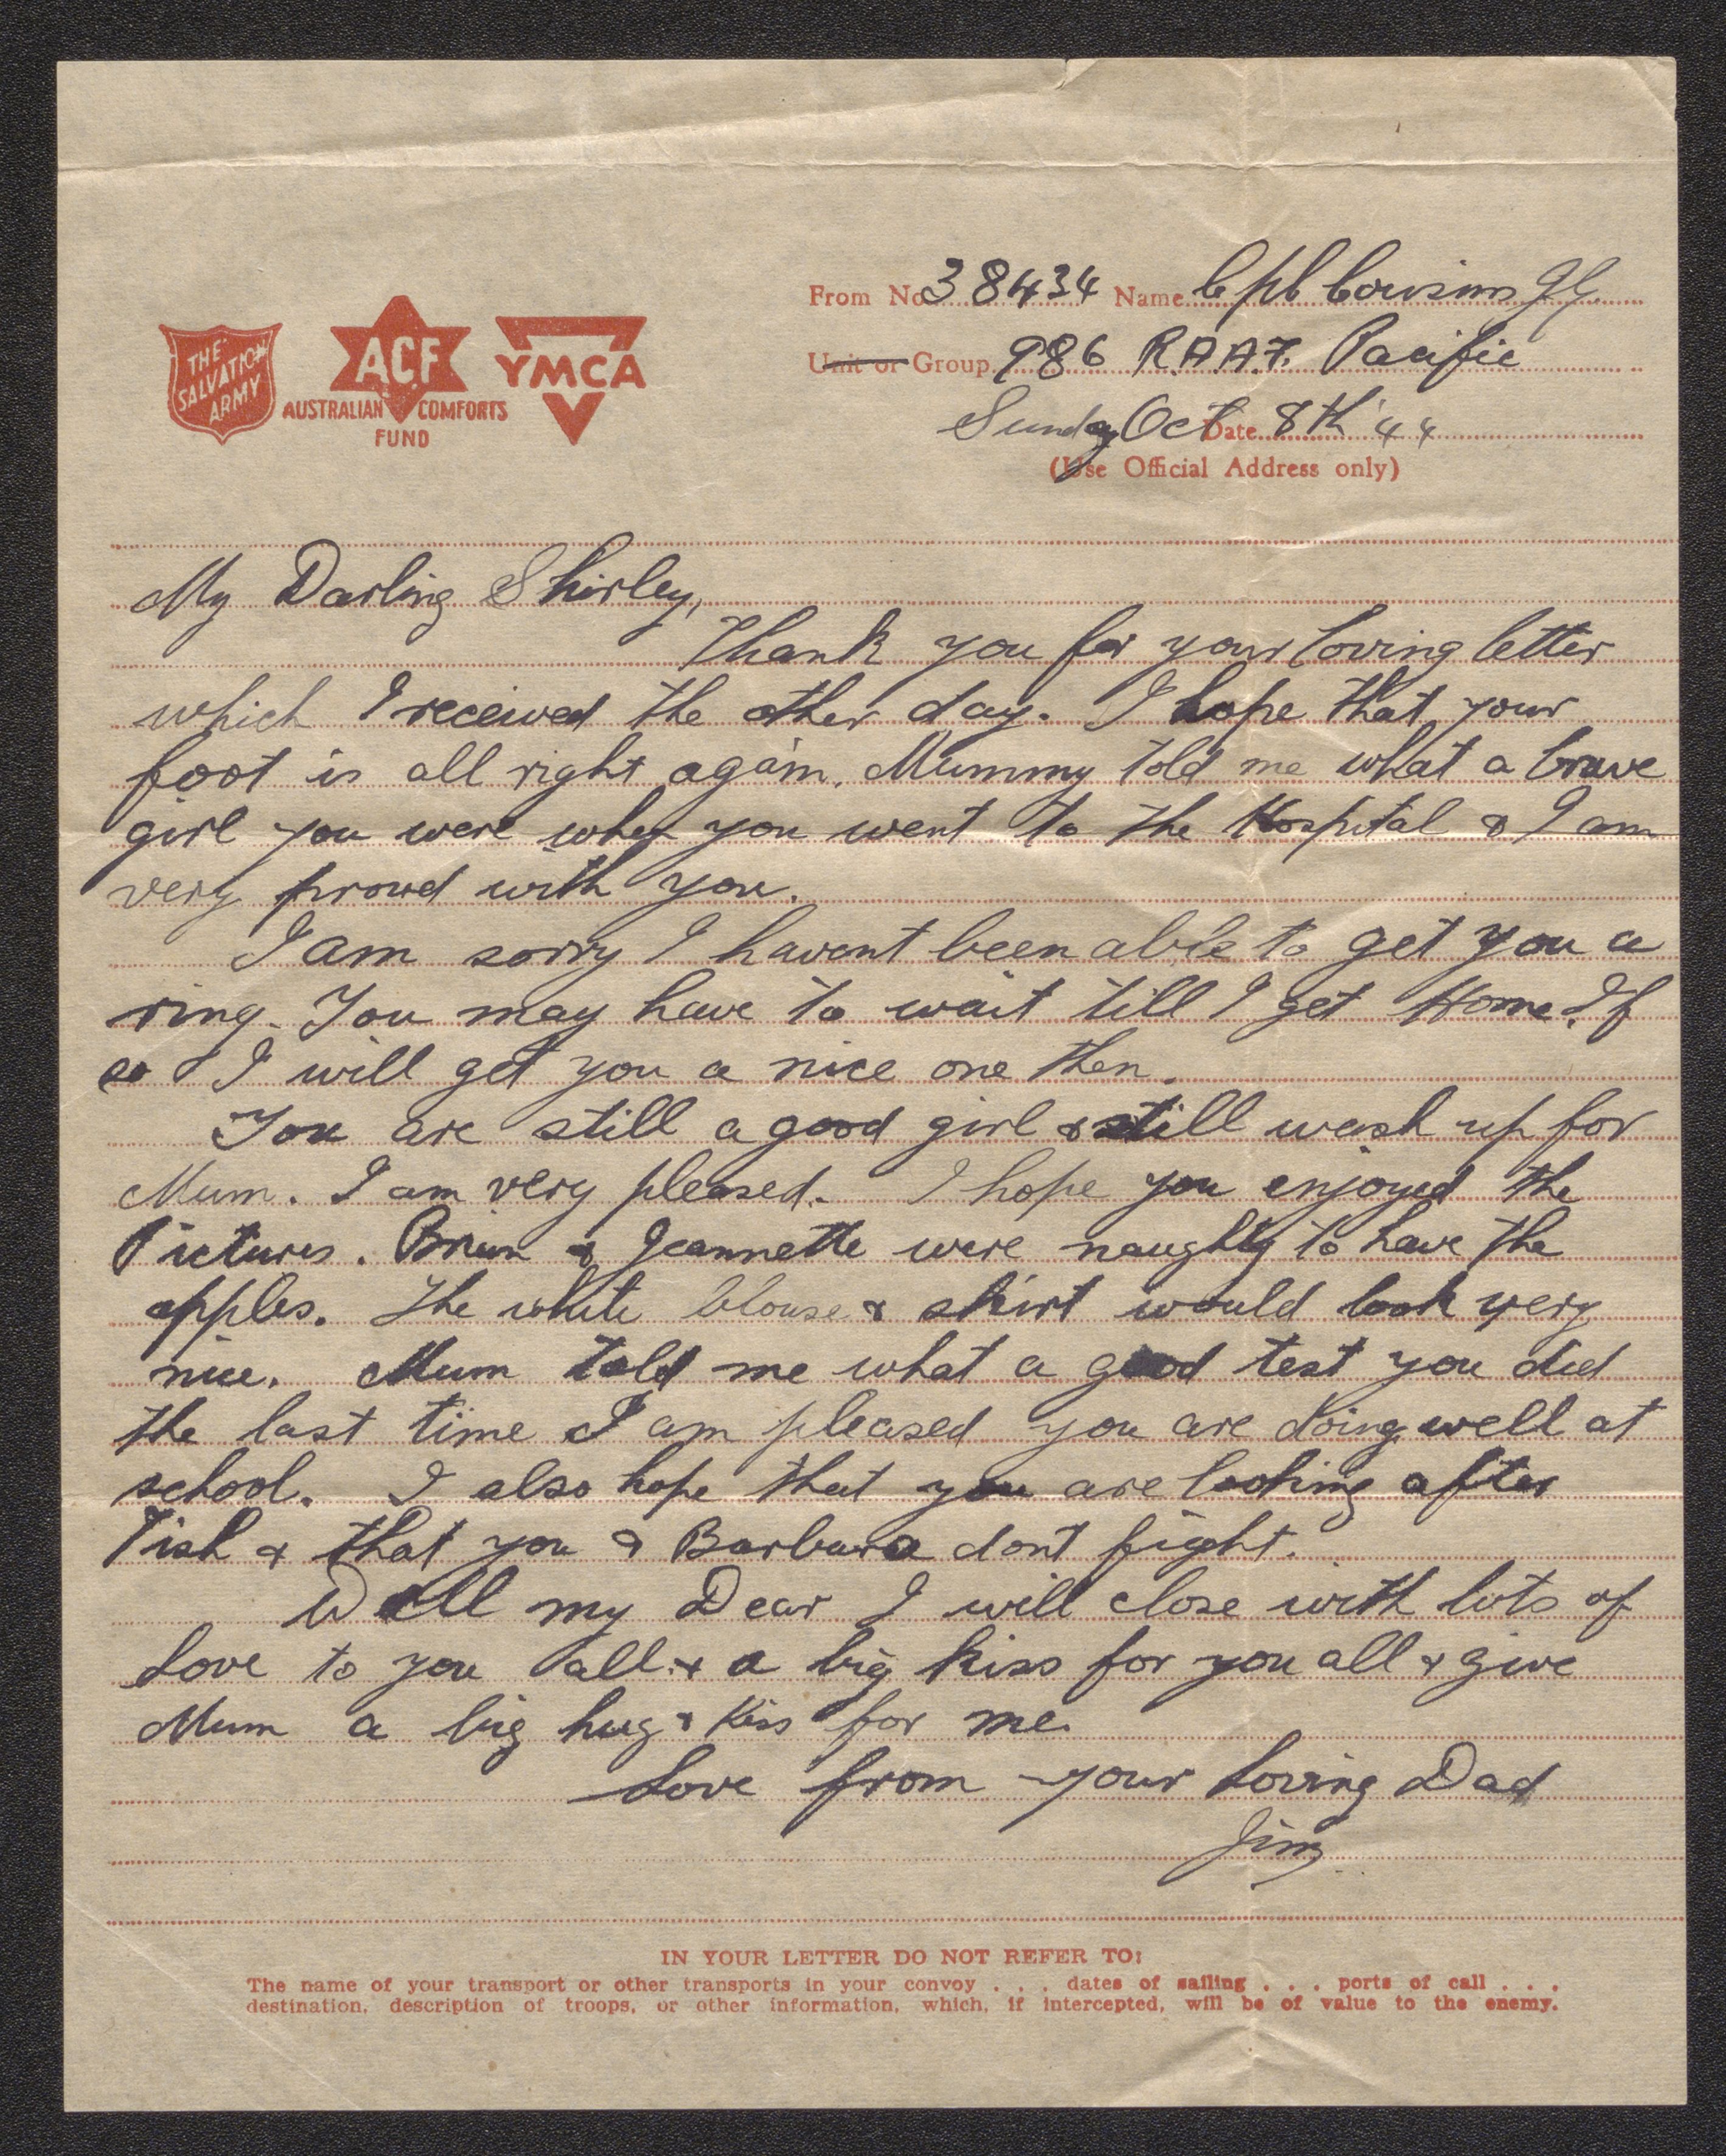 THE SALVATION ARMY
ACF
AUSTRALIAN COMFORTS FUND
YMCA
From No 38434 Name Cpl Cousins J G
Unit or Group. 986 R.A.A.F. Pacific
Sunday Oct Date 8th '44
(Use Official Address only)
My Darling Shirley,
Thank you for your loving letter
which I received the other day. I hope that your
foot is all right again. Mummy told me what a brave
girl you were when you went to the Hospital & I am
very proud with you.
I am sorry I havent been able to get you a
ring. You may have to wait till I get Home. If
so I will get you a nice one then.
You are still a good girl & still wash up for
Mum. I am very pleased. I hope you enjoyed the
Pictures. Brian & Jeannette were naughty to have the
apples. The white blouse & skirt would look very
nice. Mum told me what a good test you did
the last time I am pleased you are doing well at
school. I also hope that you are looking after
Tish & that you & Barbara dont fight.
Well my Dear I will close with lots of
Love to you all & a big kiss for you all & give
Mum a big hug & Kiss for me.
Love from your Loving Dad
Jim
IN YOUR LETTER DO NOT REFER TO:
The name of your transport or other transports in your convoy . . . dates of sailing . . . ports of call . . .
destination, description of troops, or other information, which, if intercepted, will be of value to the enemy.